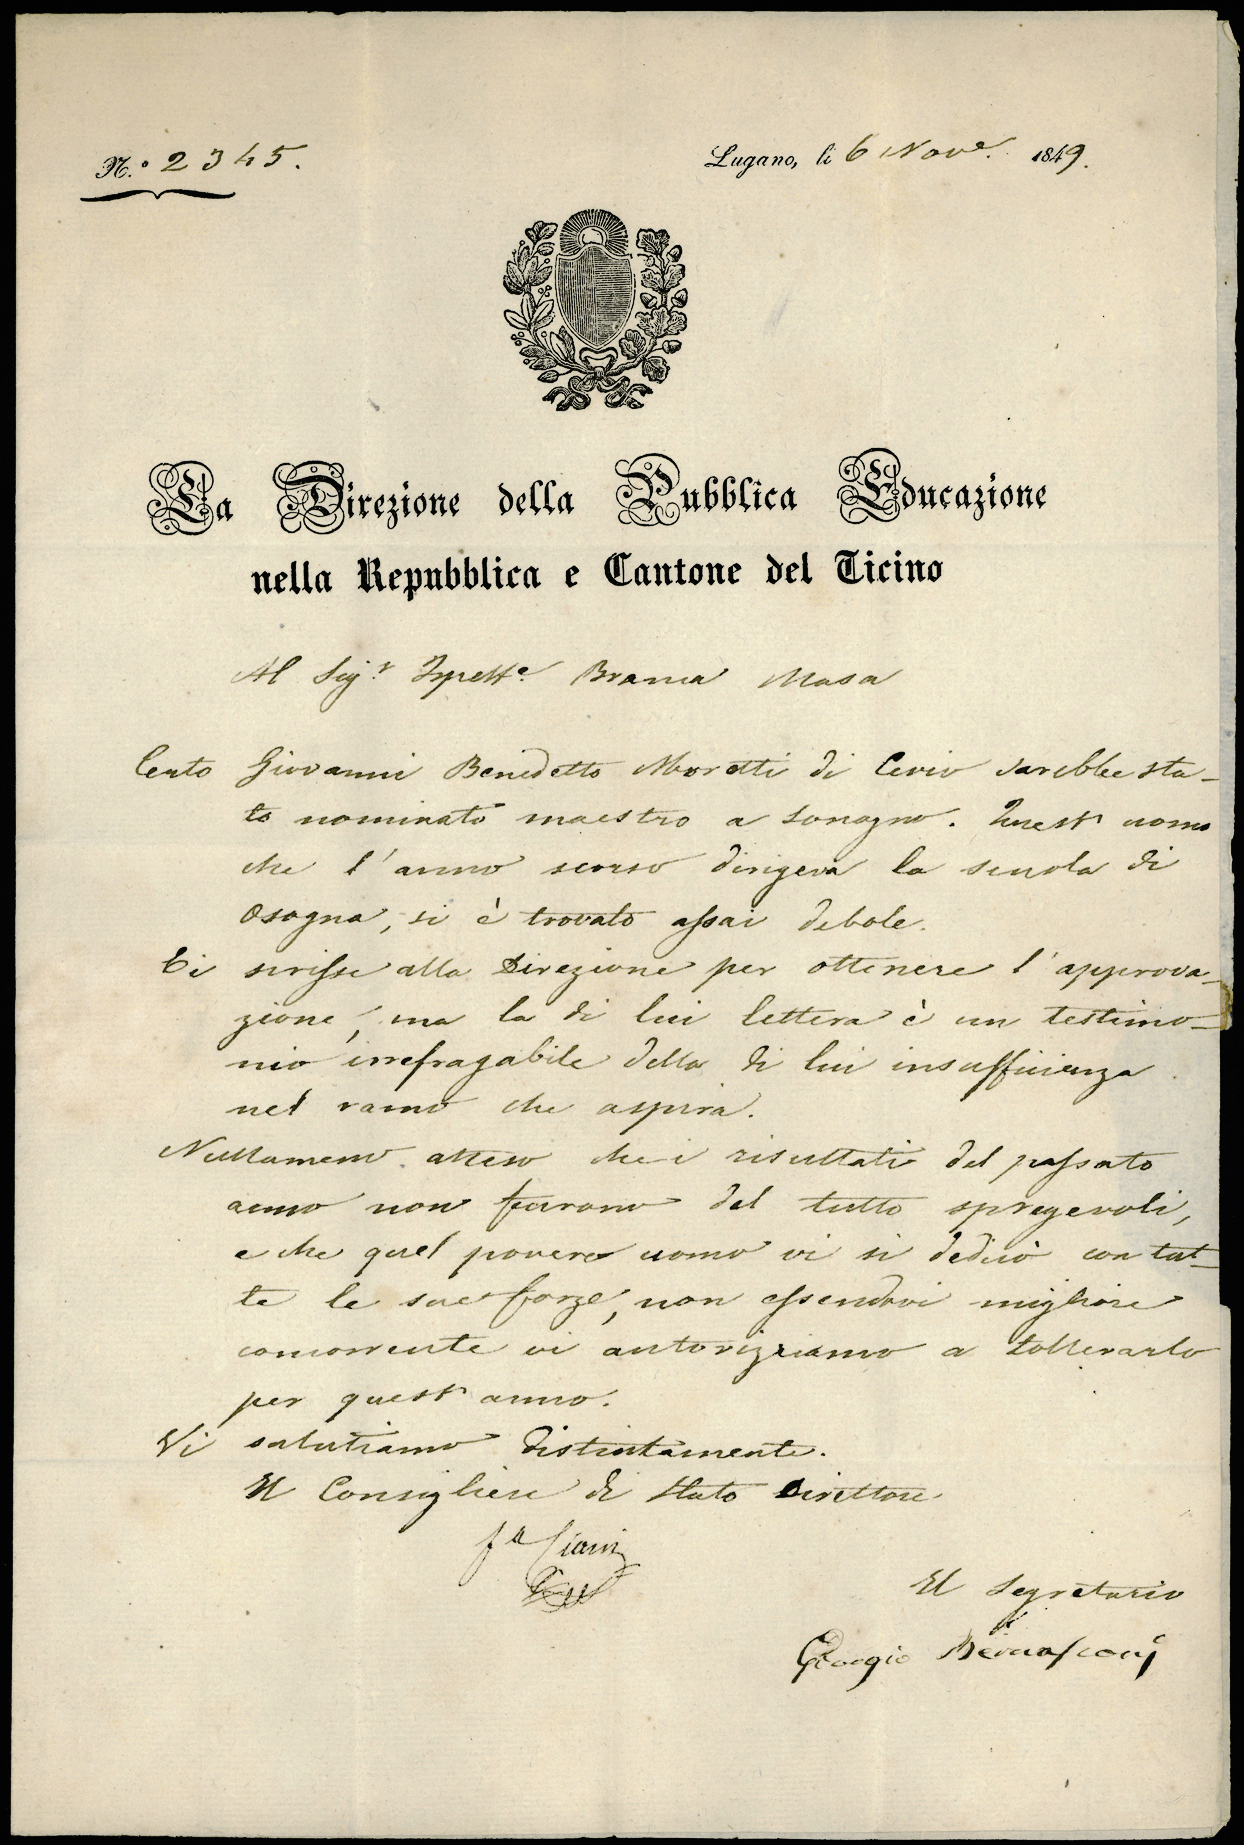 N.° 2345.
Lugano, li 6 Nov.e 1849.
La Direzione della Pubblica Educazione
nella Repubblica e Cantone del Ticino
Al Sig.r Ispett.e Branca Masa
Certo Giovanni Benedetto Moretti di Cevio sarebbe sta-
to nominato maestro a Sonogno. Quest' uomo
che l'anno scorso dirigeva la scuola di
Osogna, si è trovato assai debole.
Ei scrisse alla Direzione per ottenere l'approva-
zione, ma la di lui lettera è un testimo-
nio irrefragabile della di lui insufficienza
nel ramo che aspira.
Nullameno atteso che i risultati del passato
anno non furono del tutto spregevoli,
e che quel povero uomo vi si dedicò con tut-
te le sue forze, non essendovi migliore
concorrente vi autorizziamo a tollerarlo
per quest' anno.
Vi salutiamo distintamente.
Il Consigliere di Stato Direttore
f.a Ciani
Il Segretario
Giorgio Bernasconi